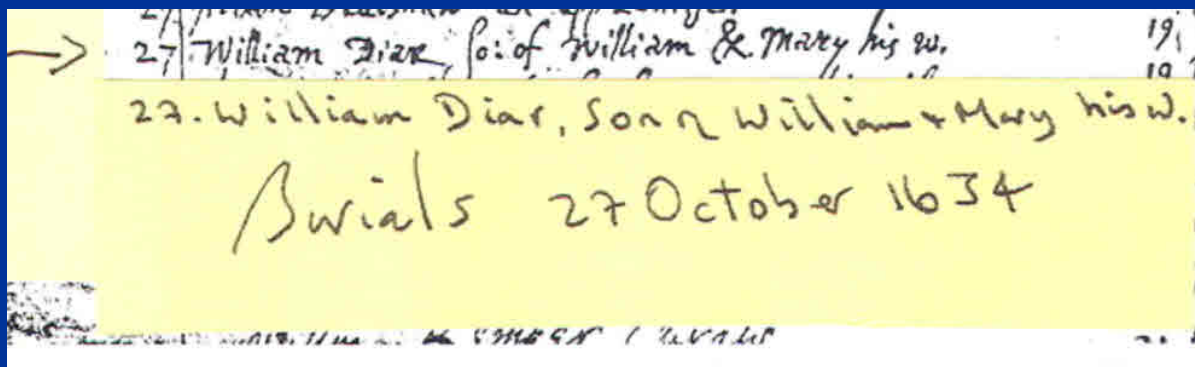 27 William Diar, so: of William & Mary his w. 19
19
27. William Diar, Son of William + Mary his w.
Burials 27 October 1634